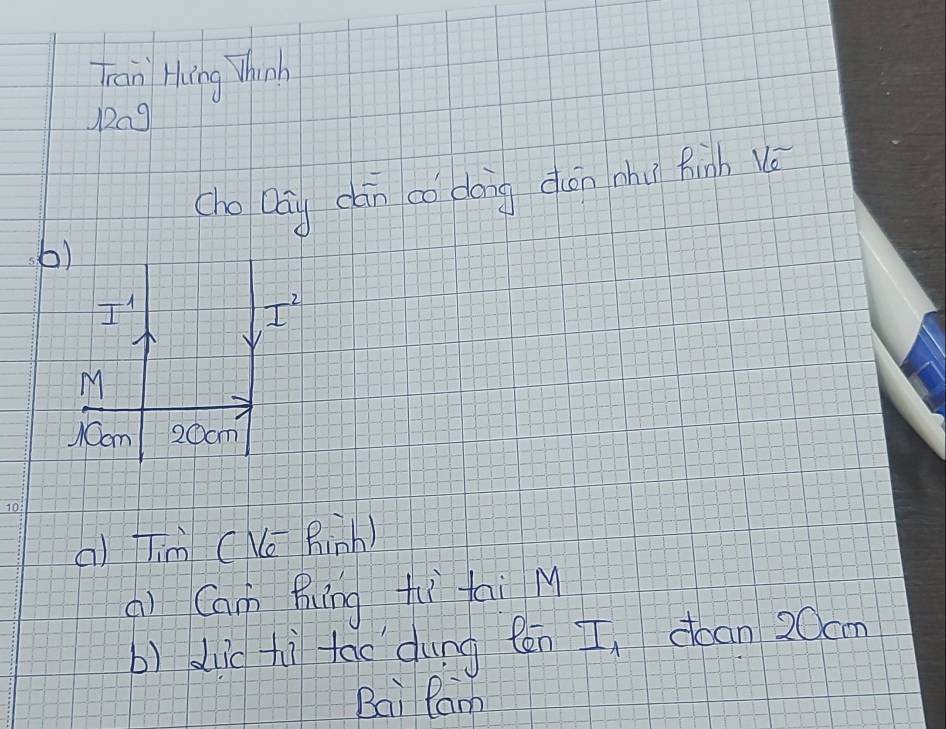 Trần Hưng Thịnh
12a9
Cho Dây dẫn có dòng điện như hình vẽ
b)
I¹ I²
M
10cm 20cm
10
a) Tìm (Vẽ hình)
a) Cảm ứng từ tại M
b) Lực từ tác dụng lên I₁ đoạn 20cm
Bài làm